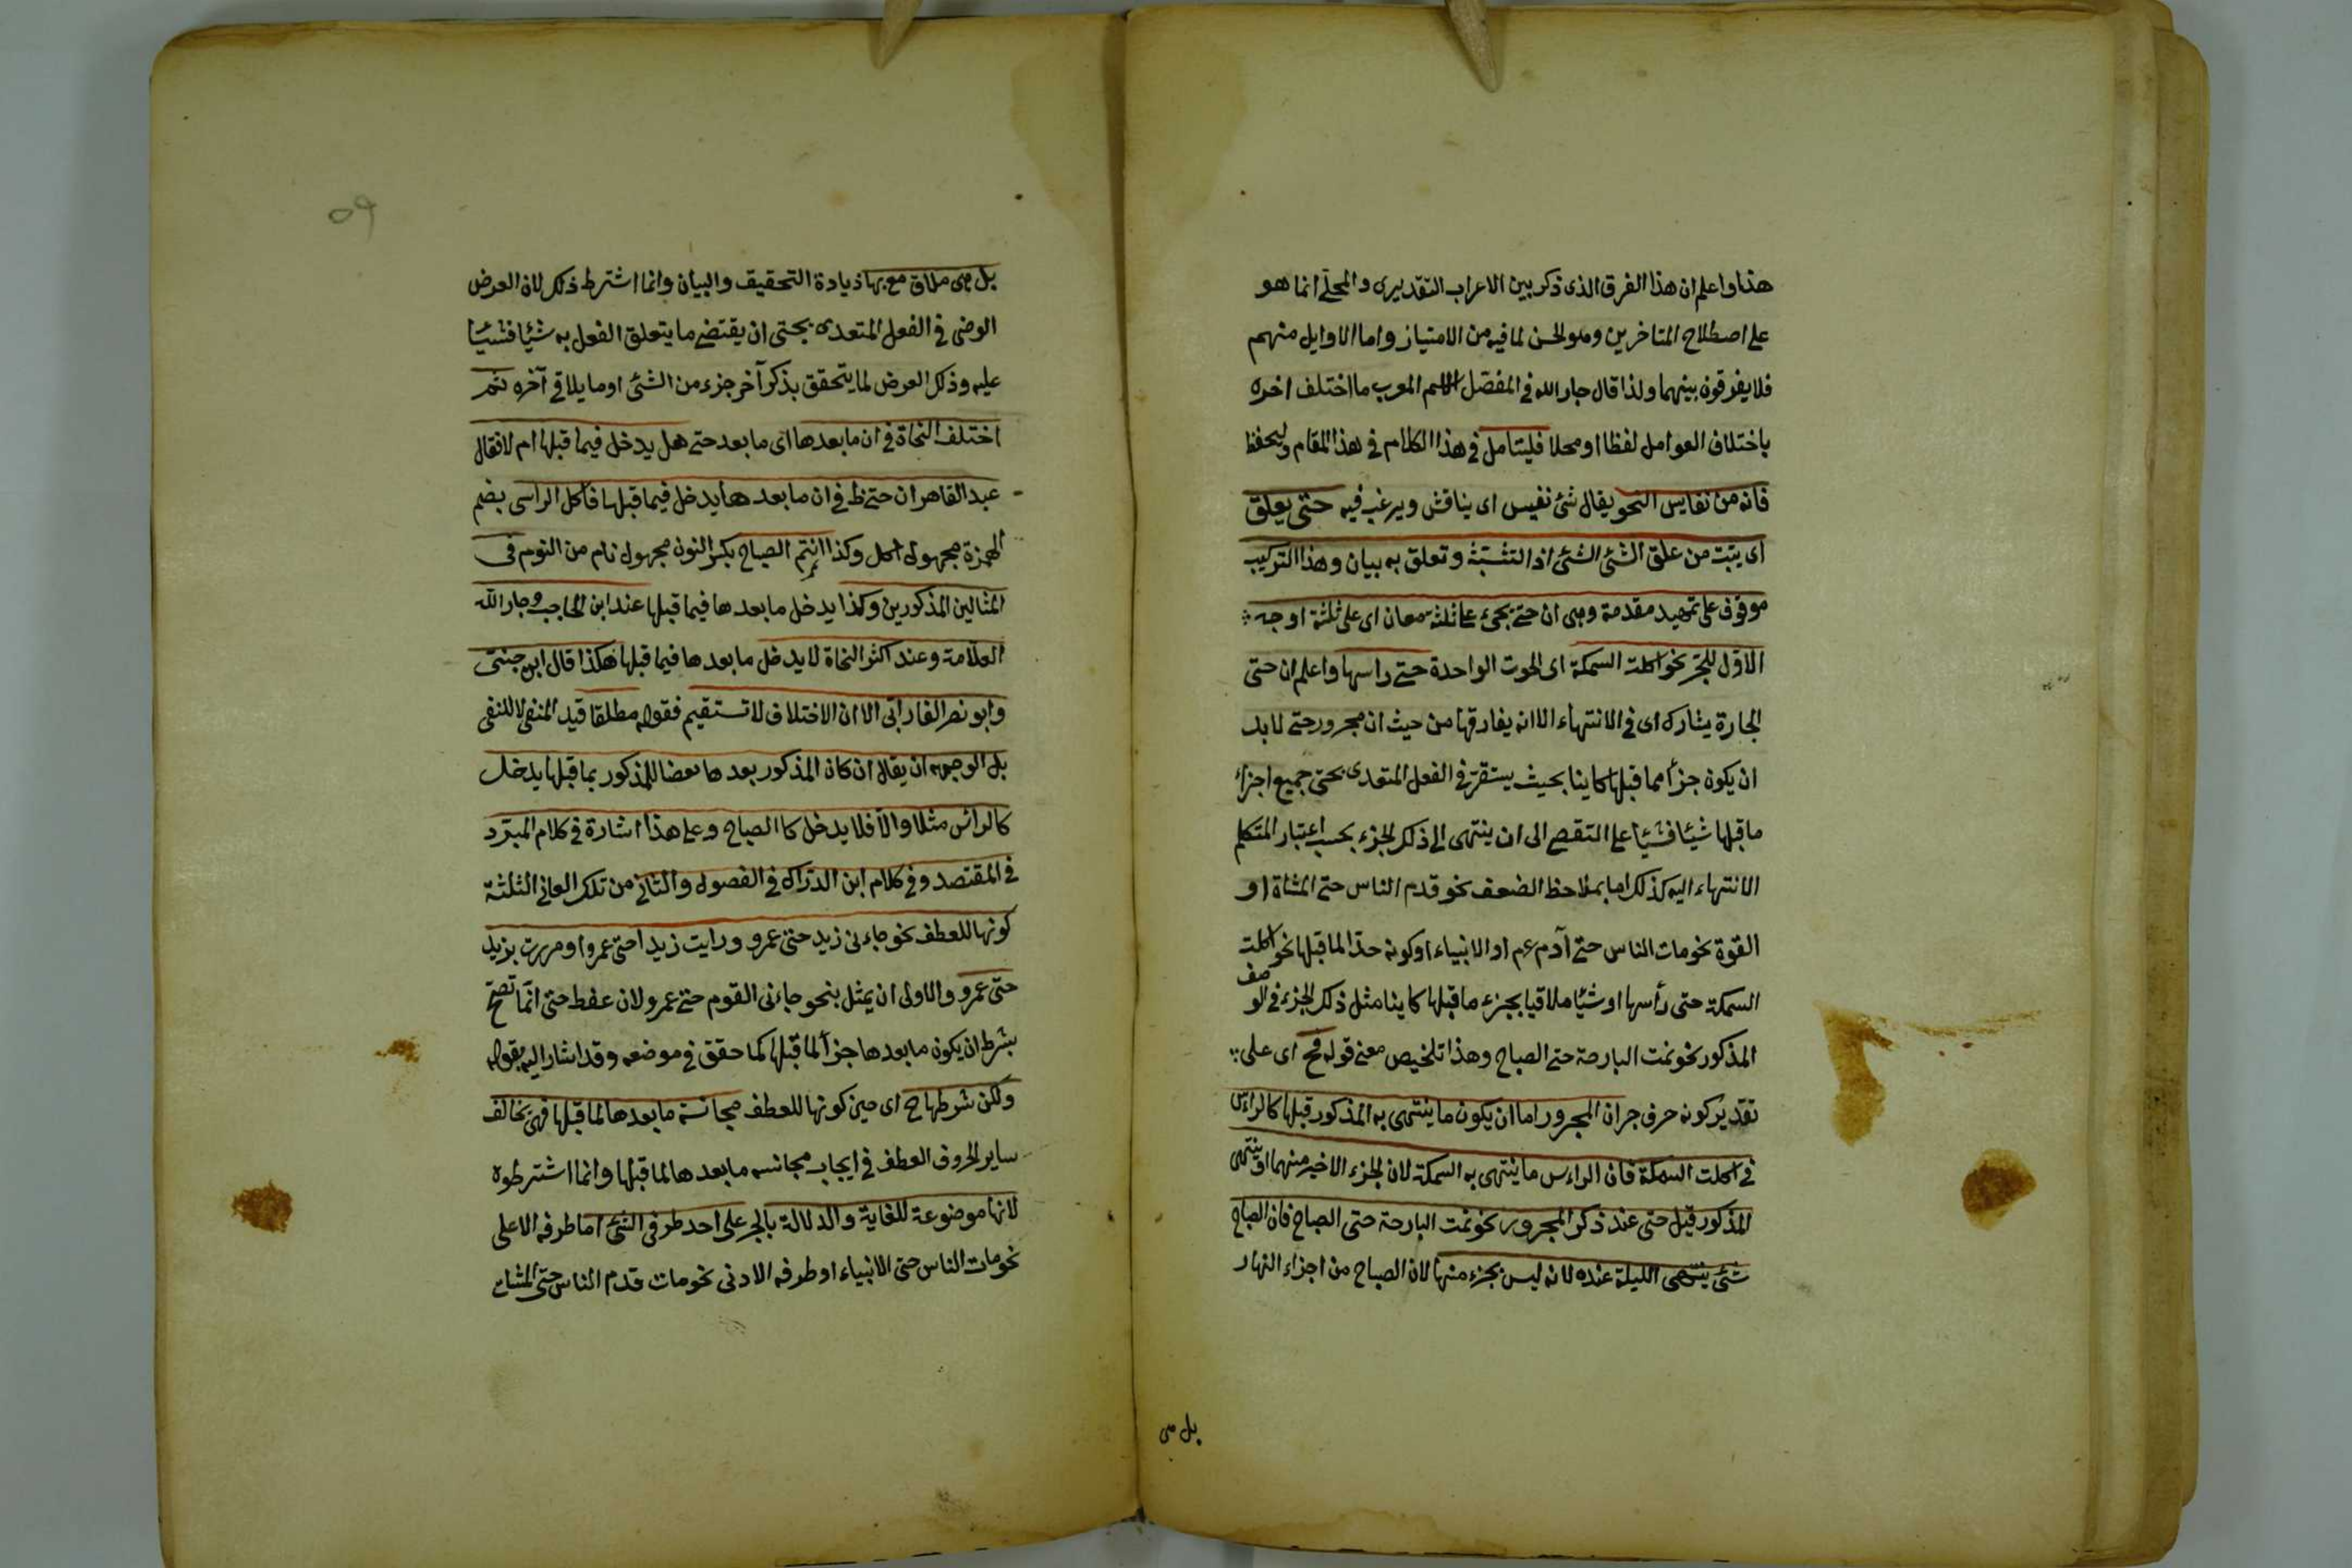 هذا واعلم ان هذا الفرق الذى ذكر بين الاعراب التقديرى والمحلى انما هو
على اصطلاح المتاخرين وهو الحسن لما فيه من الامتياز واما الاوايل منهم
فلا يفرقون بينهما ولذا قال جار الله فى المفصل الاسم المعرب ما اختلف اخره
باختلاف العوامل لفظا او محلا فليتامل فى هذا الكلام فى هذا المقام وليحفظ
فانه من نفايس النحو يقال شئ نفيس اى يناقش ويرغب فيه حتى يعلق
اى يثبت من علق الشئ الشئ اذا التشبثه وتعلق به بيان وهذا التركيب
موقوف على تمهيد مقدمة وهى ان حتى يجئ على ثلثة معان اى على ثلثة اوجه
الاول للجر نحو اكلت السمكة اى الحوت الواحدة حتى راسها واعلم ان حتى
الجارة يشارك اى فى الانتهاء الا انه يفارقها من حيث ان مجرور حتى لا بد
ان يكون جزأ مما قبلها كاينا بحيث يستقر فى الفعل المتعدى بحتى جميع اجزاء
ما قبلها شيئا فشيئا على التقصى الى ان ينتهى الى ذكر الجزء بحسب اعتبار المتكلم
الانتهاء اليه كذلك اما بملاحظ الضعف نحو قدم الناس حتى المشاة او
القوة نحو مات الناس حتى آدم عم او الانبياء او كونه حدا لما قبلها نحو اكلت
السمكة حتى رأسها او شيئا ملاقيا بجزء ما قبلها كاينا مثل ذكر الجزء فى الوصف
المذكور نحو نمت البارحة حتى الصباح وهذا تلخيص معنى قوله فح اى على
تقدير كونه حرف جر ان المجرور اما ان يكون ما ينتهى به المذكور قبلها كالراس
فى اكلت السمكة فان الراس ما ينتهى به السمكة لان الجزء الاخير منهما او ينتهى
المذكور قبل حتى عند ذكر المجرور نحو نمت البارحة حتى الصباح فان الصباح
شئ ينتهى الليلة عنده لانه ليس بجزء منها لان الصباح من اجزاء النهار
بل هى
٥٩
بل هى ملاق مع بها زيادة التحقيق والبيان وانما اشترط ذكر لان العرض
الوضى فى الفعل المتعدى بحتى ان يقتضى ما يتعلق الفعل به شيئا فشيئا
عليه وذلك العرض لما يتحقق بذكر آخر جزء من الشئ او ما يلاقى آخره ثم
اختلف النحاة فى ان ما بعدها اى ما بعد حتى هل يدخل فيما قبلها ام لا فقال
عبد القاهر ان حتى ظ فى ان ما بعدها يدخل فيما قبلها فاكل الراس بضم
الهمزة مجهول اكل وكذا انتم الصباح بكسر النون مجهول نام من النوم فى
المثالين المذكورين وكذا يدخل ما بعدها فيما قبلها عند ابن الحاجب وجار الله
العلامة وعند اكثر النحاة لا يدخل ما بعدها فيما قبلها هكذا قال ابن جنى
وابو نصر الفارابى الا ان الاختلاف لا تستقيم فقوله مطلقا قيد المنفى لا للنفى
بل الوجه ان يقال ان كان المذكور بعدها بعضا للمذكور بما قبلها يدخل
كالرأس مثلا والا فلا يدخل كا الصباح وعلى هذا اشارة فى كلام المبرد
فى المقتصد وفى كلام ابن الدراك فى الفصول والثانى من تلك المعانى الثلثة
كونها للعطف نحو جاءنى زيد حتى عمرو ورايت زيدا حتى عمروا ومررت بزيد
حتى عمرو والاولى ان يمثل بنحو جاءنى القوم حتى عمرو لان عطف حتى انما تصح
بشرط ان يكون ما بعدها جزأ لما قبلها كما حقق فى موضعه وقد اشار اليه بقوله
ولكن شرطها ح اى حين كونها للعطف مجانسة ما بعدها لما قبلها فهى تخالف
ساير الحروف العطف فى ايجاب مجانسه ما بعدها لما قبلها وانما اشترطوه
لانها موضوعة للغاية والدلالة بالجر على احد طرفى الشئ اما طرفه الاعلى
نحو مات الناس حتى الانبياء او طرفه الادنى نحو مات قدم الناس حتى المشات